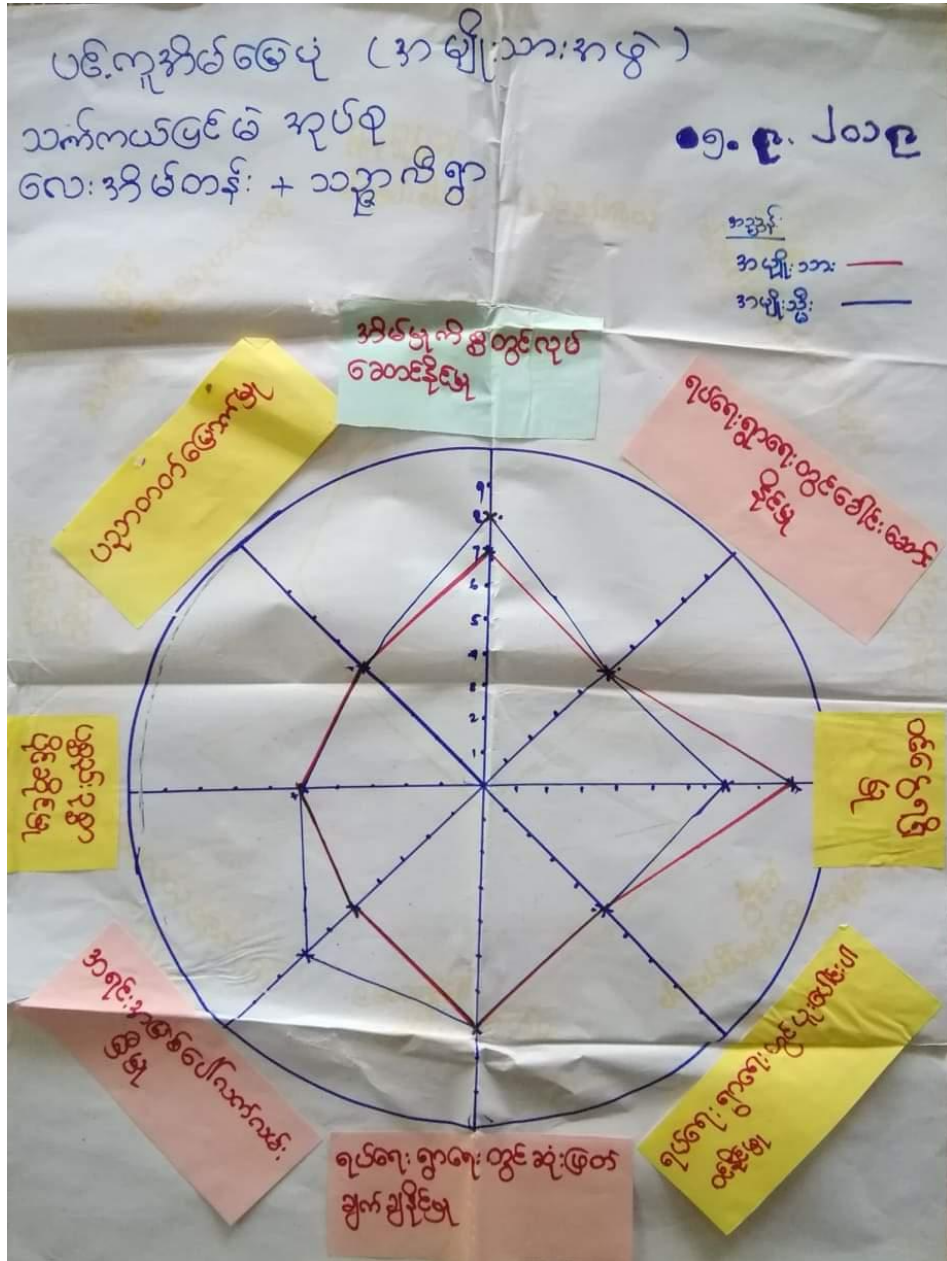 ပင့်ကူအိမ်မြေပုံ (အမျိုးသားအဖွဲ့)
သက်ကယ်ပြင်မဲ အုပ်စု
လေးအိမ်တန်း + သညာလီရွာ
၀၅. ၉. ၂၀၁၉
အညွှန်း
အမျိုးသား
အမျိုးသမီး
အိမ်မှုကိစ္စတွင်လုပ်
ဆောင်နိုင်မှု
ပညာတတ်မြောက်မှု
ရပ်ရေးရွာရေးတွင်ခေါင်းဆောင်
နိုင်မှု
ဝင်ငွေရရှိ
မှု
ရပ်ရေးရွာရေးတွင်ပူးပေါင်းပါ
ဝင်နိုင်မှု
ရပ်ရေးရွာရေးတွင်ဆုံးဖြတ်
ချက်ချနိုင်မှု
အရင်းအမြစ်ပေါ်လက်လှမ်း
မှီမှု
9
8
7
6
5
4
3
2
1